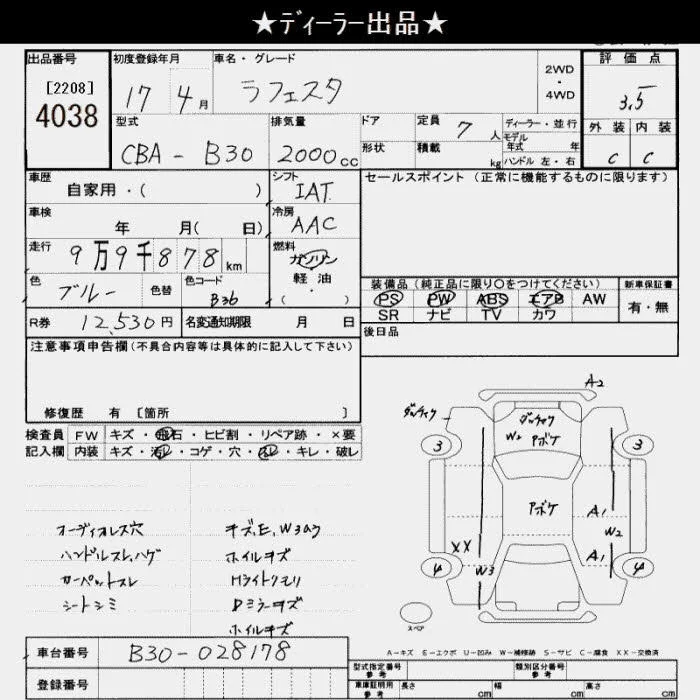 ★ディーラー出品★
出品番号 初度登録年月 車名・グレード 2WD・4WD 評価点
[2208] 17 4月 ラフェスタ 3.5
4038
型式 排気量 ドア 定員 7人 ディーラー・並行 外装 内装
モデル
CBA-B30 2000cc 形状 積載 kg 年式 年 C C
ハンドル 左・右
車歴 シフト セールスポイント(正常に機能するものに限ります)
自家用・( ) IAT
車検 冷房
年 月( 日) AAC
走行 燃料
9万9千878km ガソリン
色 色替 色コード 軽油
ブルー B36 ・( )
装備品(純正品に限り〇をつけてください) 新車保証書
PS PW ABS エアB AW 有・無
SR ナビ TV カワ
R券 12,530円 名変通知期限 月 日
後日品
注意事項申告欄(不具合内容等は具体的に記入して下さい)
修復歴 有 [箇所 ]
検査員 FW キズ・飛石・ヒビ割・リペア跡・×要
記入欄 内装 キズ・汚レ・コゲ・穴・スレ・キレ・破レ
オーディオレス穴 キズ,E,W3あり
ハンドルスレ,ハゲ ホイルキズ
カーペットスレ Hライトクモリ
シートシミ Dミラーキズ
ホイルキズ
A2
W2 アバケ
3 3
アバケ
A1
XX W2
A1
4 W3 4
スペア
A-キズ E-エクボ U-凹み W-補修跡 S-サビ C-腐食 XX-交換済
車台番号 B30-028178
登録番号
型式指定番号 参考 類別区分番号 参考
車庫証明用 参考 長さ cm 幅 cm 高さ cm